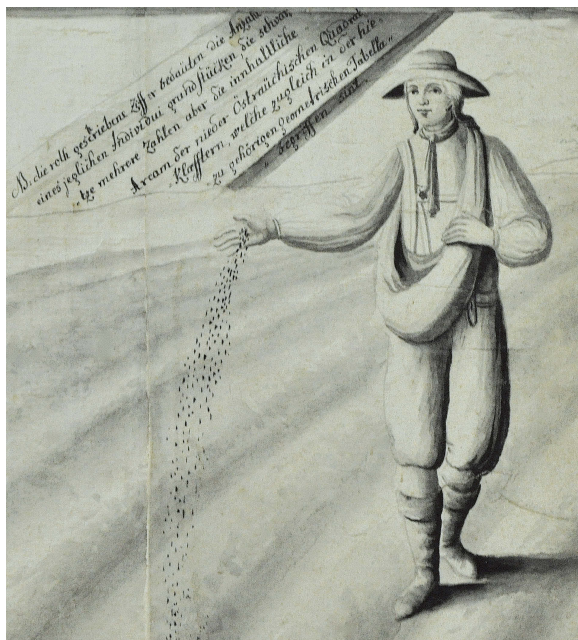 NB. die roth geschriebene Ziffer bedeuten die Anzahl
eines jeglichen Individui grundstücken die schwar,
tze mehrere Zahlen aber die innhaltliche
Aream der nieder Östraichischen Quadrat
Klafftern, welche zugleich in der hie-
zu gehörigen geometrischen Tabella
begriffen sint.